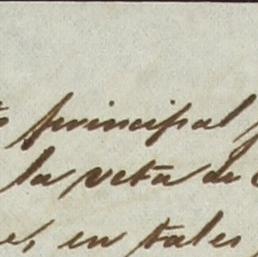 principal
la veta de
en tales